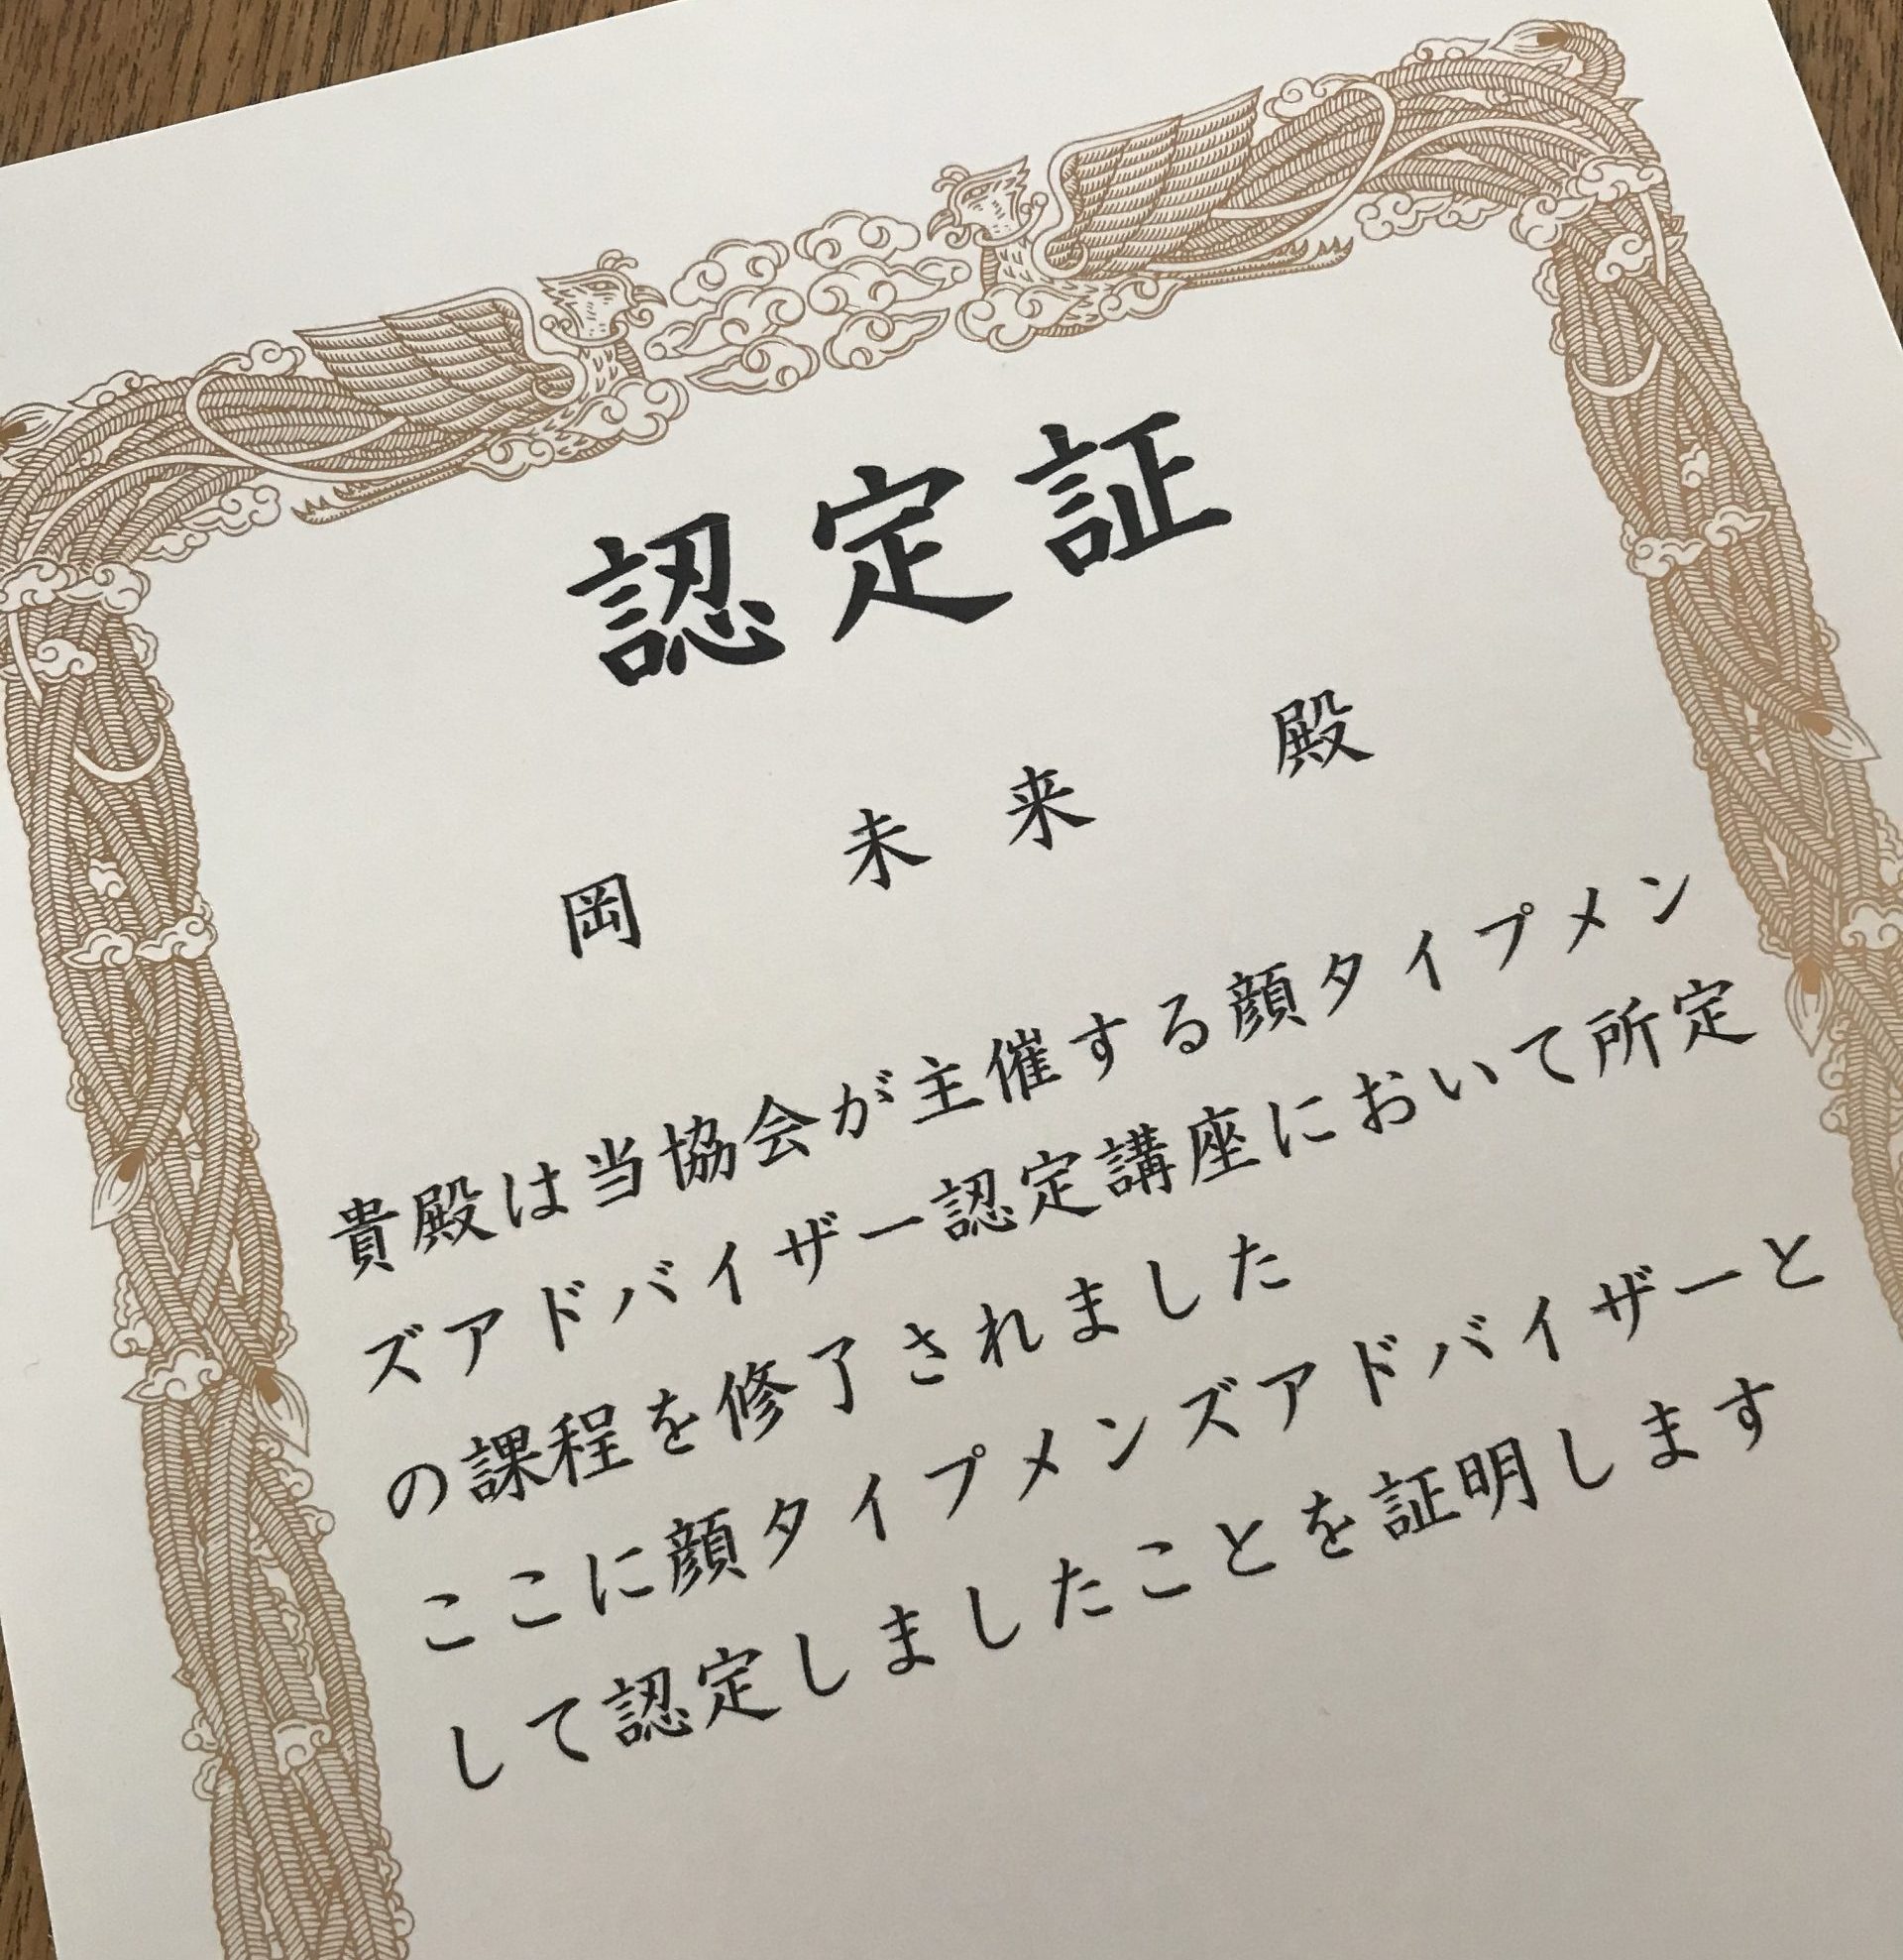 認定証
岡 未来 殿
貴殿は当協会が主催する顔タイプメン
ズアドバイザー認定講座において所定
の課程を修了されました
ここに顔タイプメンズアドバイザーと
して認定しましたことを証明します